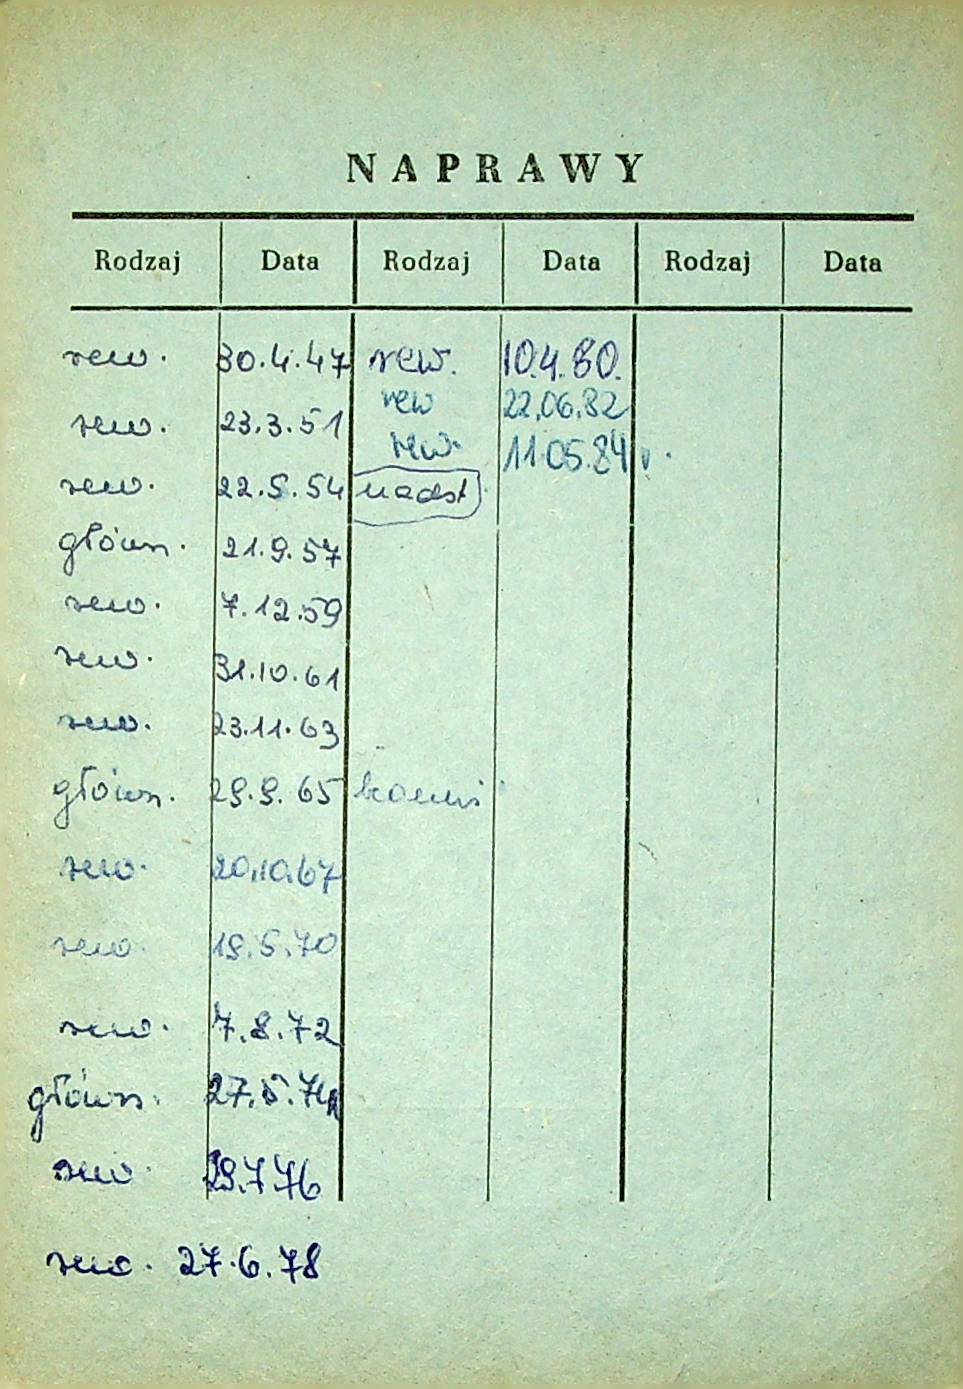 NAPRAWY
Rodzaj Data Rodzaj Data Rodzaj Data
rew. 30.4.47 rew. 10.4.80.
rew 22.06.82
rew. 23.3.51
rew. 11.05.84 r.
rew. 22.5.54 nadst
główn. 21.9.57
rew. 7.12.59
rew. 31.10.61
rew. 23.11.63
główn. 29.9.65
rew. 20.10.67
rew. 19.5.70
rew. 7.8.72
główn. 27.5.74
rew. 29.7.76
rew. 27.6.78